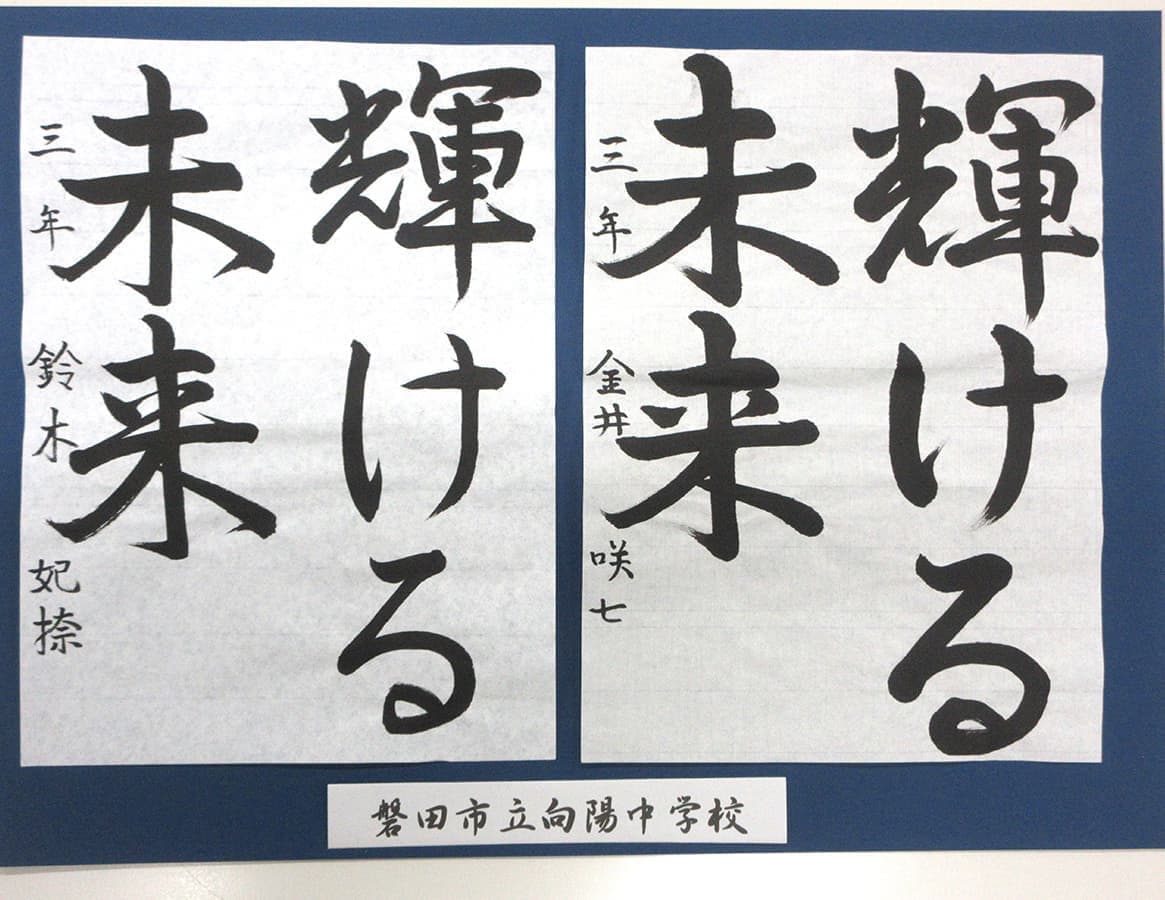 輝ける
未来
三年 金井 咲七
輝ける
未来
三年 鈴木 妃捺
磐田市立向陽中学校